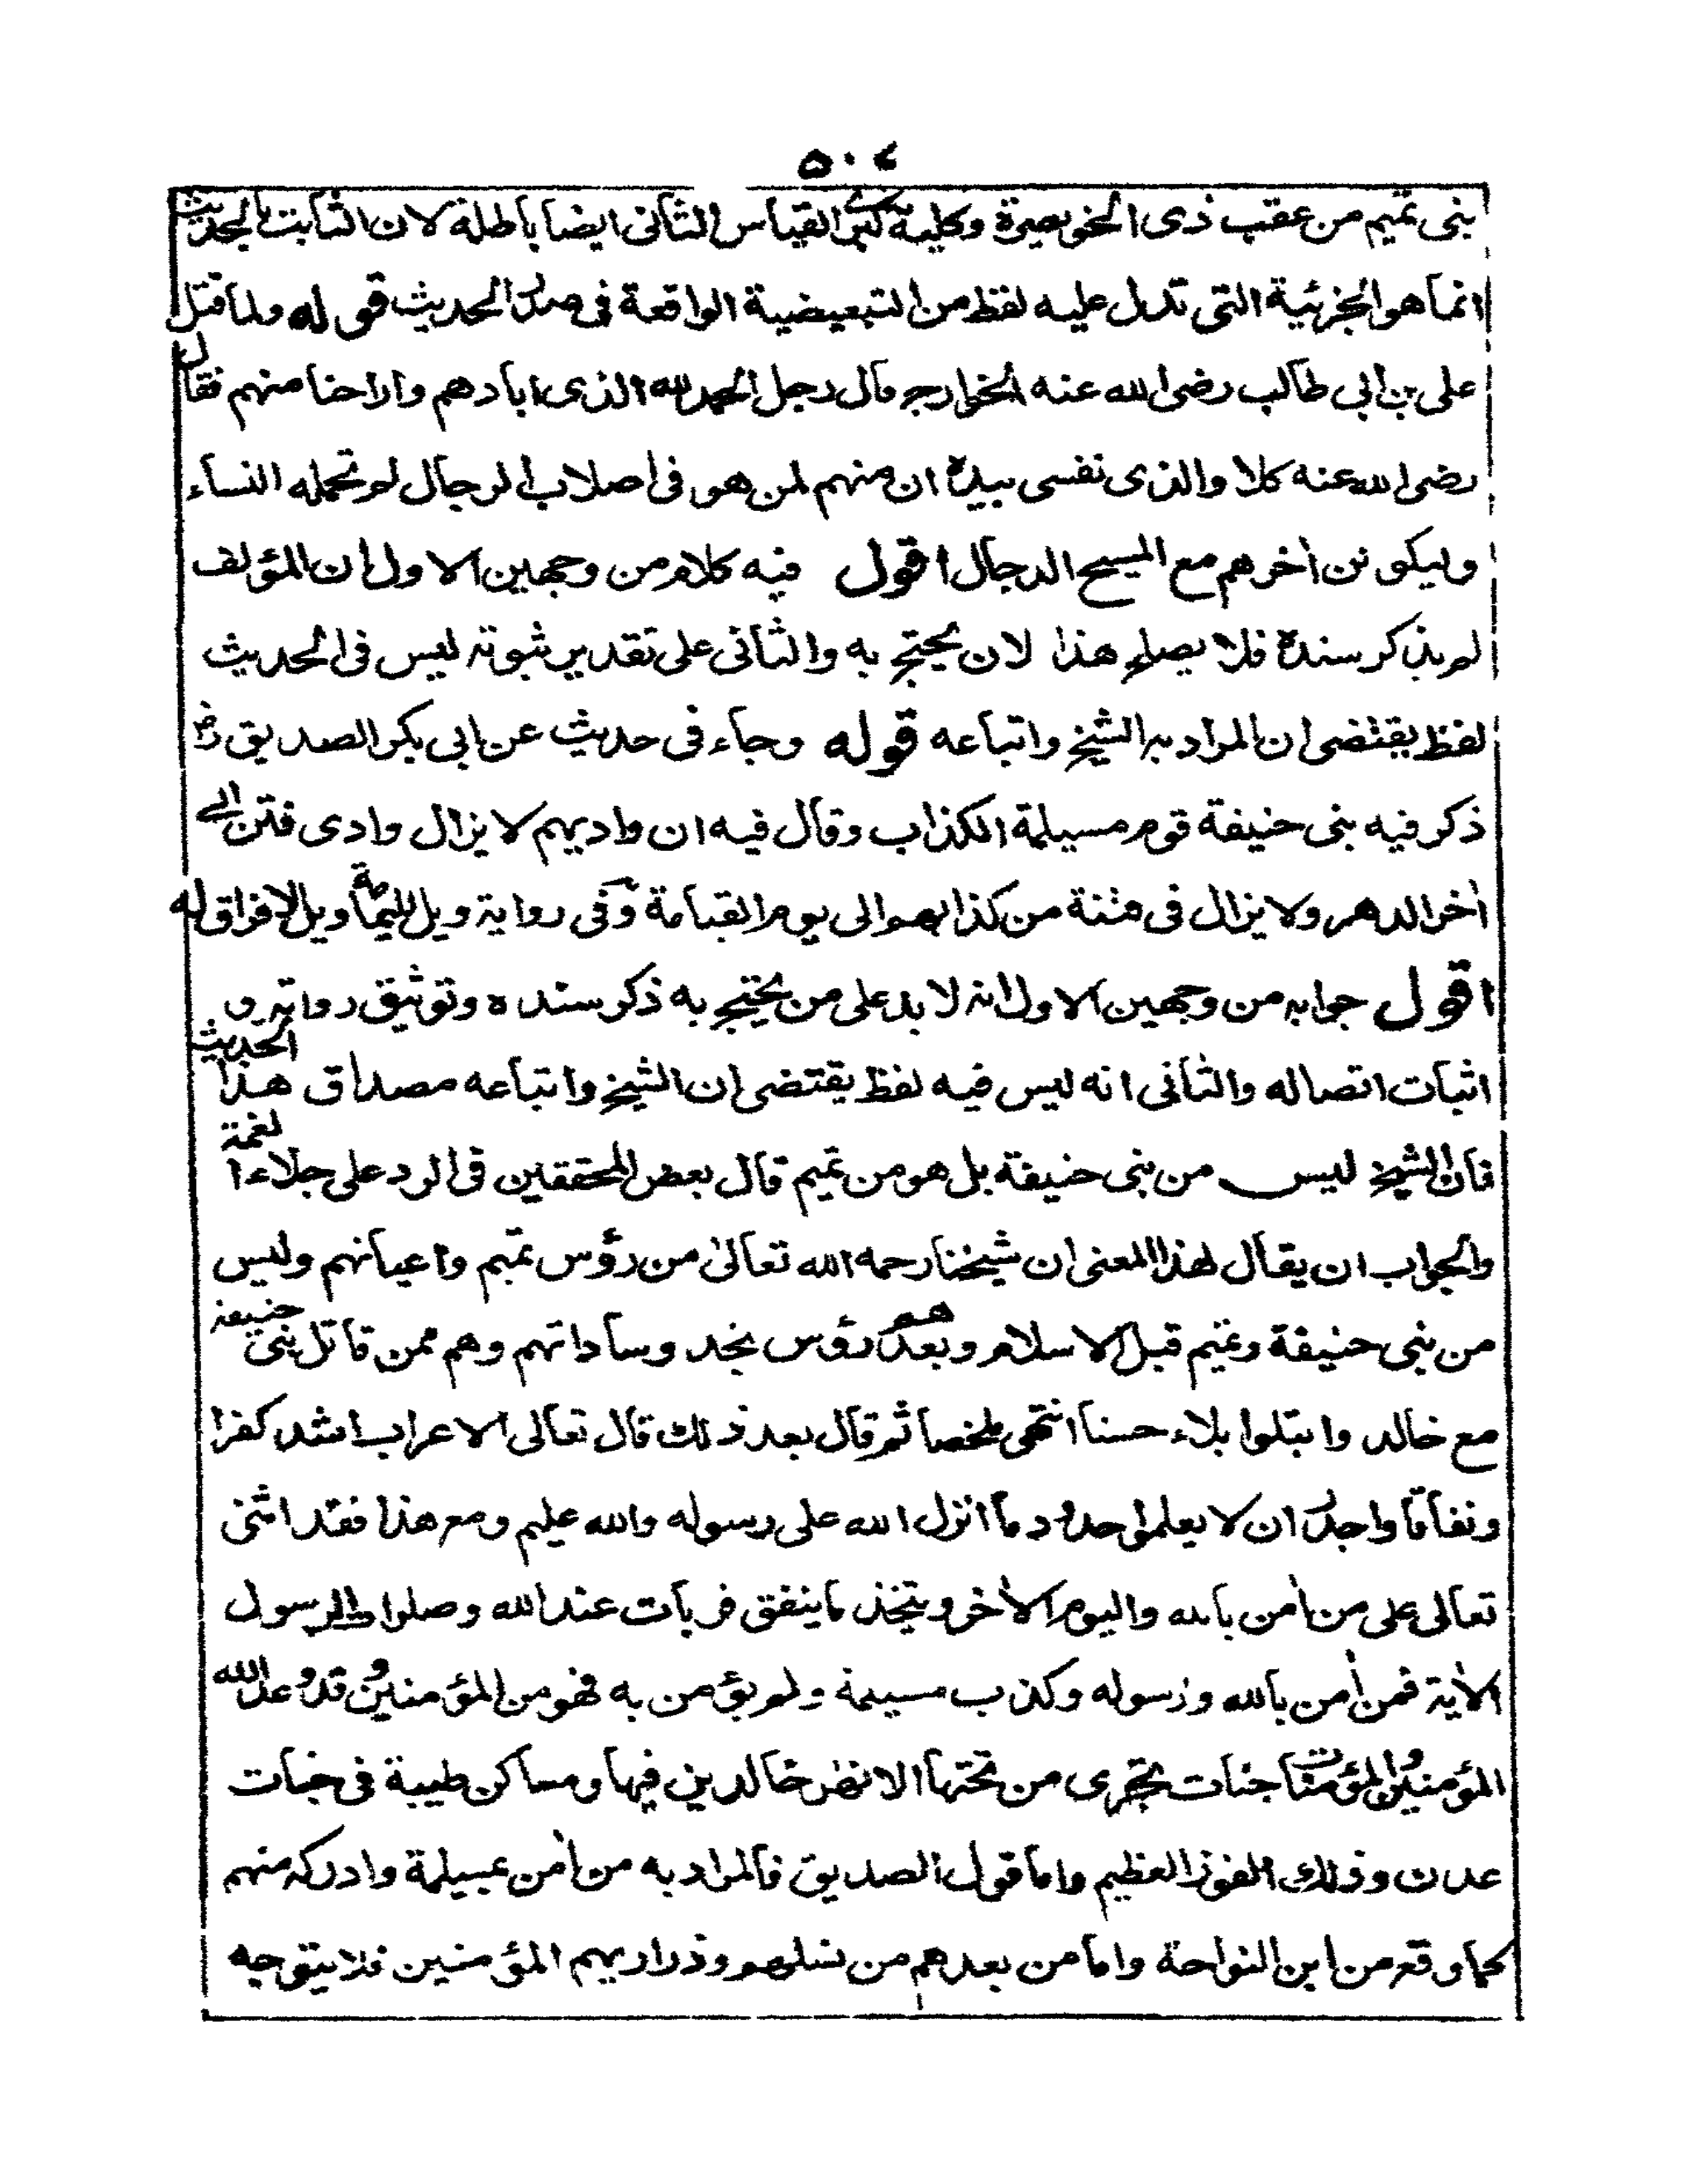 ٥٠٤
بنى تميم من عقب ذى الخويصرة وكلية كبرى القياس الثانى ايضا باطلة لان الثابت بالحديث
انما هو الجزئية التى تدل عليه لفظ من التبعيضية الواقعة فى صدر الحديث قوله ولما قتل
على بن ابى طالب رضى الله عنه الخوارج قال رجل الحمد لله الذى ابادهم واراحنا منهم فقال
رضى الله عنه كلا والذى نفسى بيده ان منهم لمن هو فى اصلاب الرجال لم تحمله النساء
وليكونن اخرهم مع المسيح الدجال اقول فيه كلام من وجهين الاول ان المؤلف
لم يذكر سنده فلا يصلح هذا لان يحتج به والثانى على تقدير ثبوته ليس فى الحديث
لفظ يقتضى ان المراد به الشيخ واتباعه قوله وجاء فى حديث عن ابى بكر الصديق رض
ذكر فيه بنى حنيفة قوم مسيلمة الكذاب وقال فيه ان واديهم لا يزال وادى فتن الى
اخر الدهر ولا يزال فى فتنة من كذابهم الى يوم القيامة وفى رواية ويل لليمامة ويل لا فراق له
اقول جوابه من وجهين الاول انه لا بد على من يحتج به ذكر سنده وتوثيق رواته و
اثبات اتصاله والثانى انه ليس فيه لفظ يقتضى ان الشيخ واتباعه مصداق هذا الحديث
فان الشيخ ليس من بنى حنيفة بل هو من تميم قال بعض المحققين فى الرد على جلاء الغمة
والجواب ان يقال لهذا المعنى ان شيخنا رحمه الله تعالى من رؤس تميم واعيانهم وليس
من بنى حنيفة وتميم قبل الاسلام وبعده هم رؤس نجد وساداتهم وهم ممن قاتل بنى حنيفة
مع خالد وابتلوا بلاء حسنا انتهى ملخصا ثم قال بعد ذلك قال تعالى الاعراب اشد كفرا
ونفاقا واجدر ان لا يعلموا حدود ما انزل الله على رسوله والله عليم ومع هذا فقد اثنى
تعالى على من امن بالله واليوم الاخر ويتخذ ما ينفق قربات عند الله وصلوات الرسول
الاية فمن امن بالله ورسوله وكذب مسيلمة ولم يؤمن به فهو من المؤمنين وقد وعد الله
المؤمنين والمؤمنات جنات تجرى من تحتها الانهر خالدين فيها ومساكن طيبة فى جنات
عدن وذلك الفوز العظيم واما قول الصديق فالمراد به من امن بمسيلمة وادركه منهم
كما وقع من ابن النواحة واما من بعدهم من نسلهم وذراريهم المؤمنين فلا يتوجه